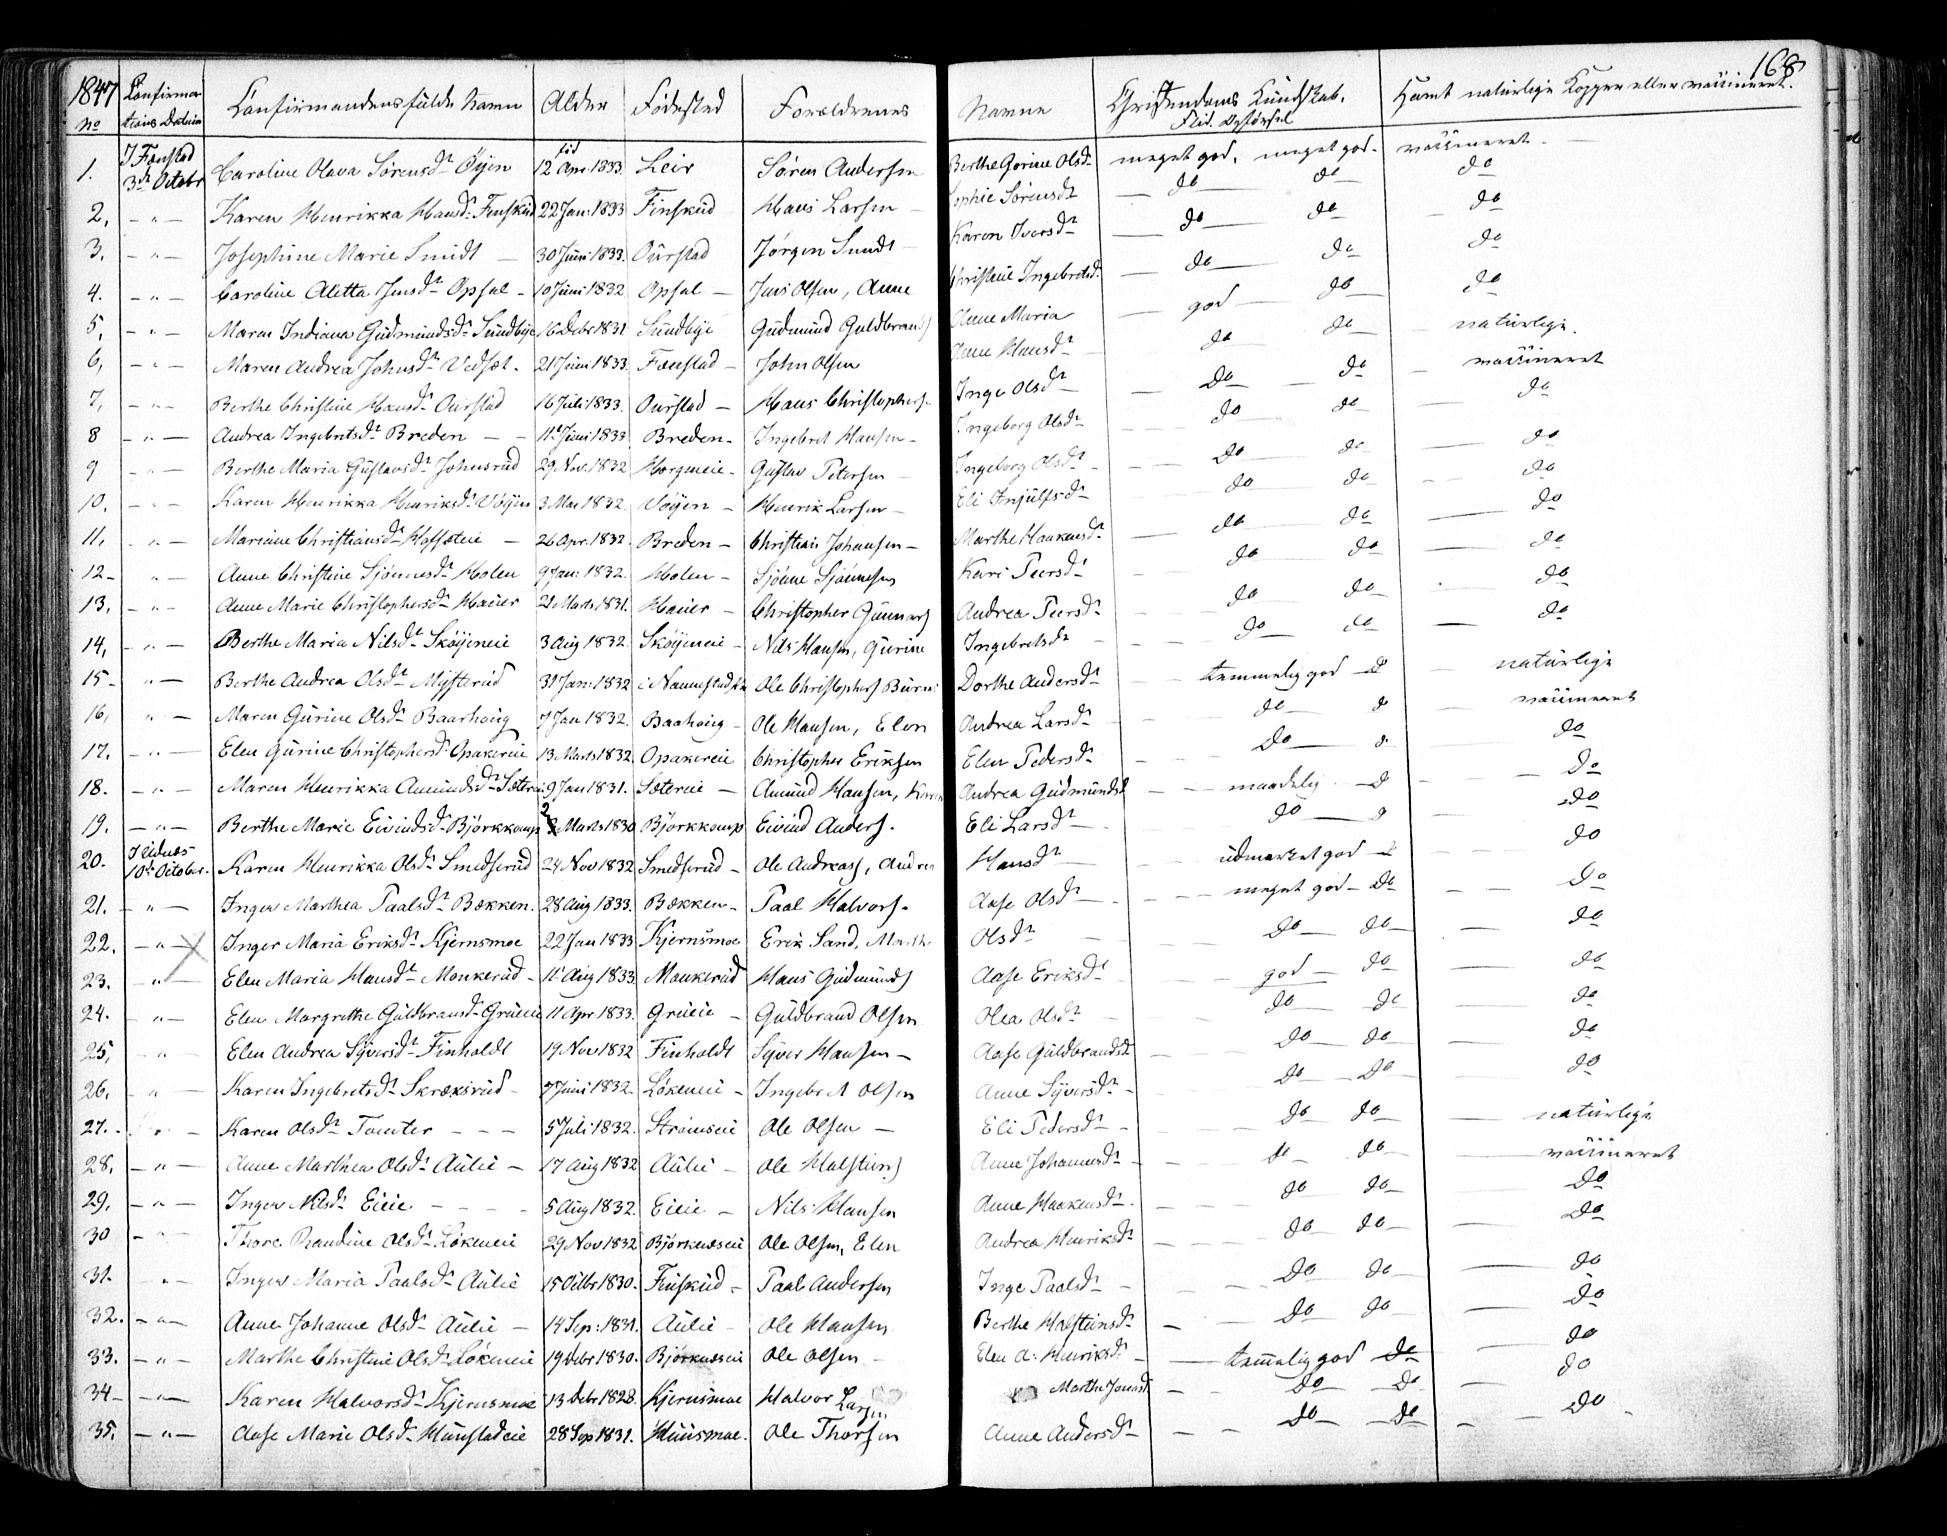 168
1847 Confirma- Confirmandens fulde Navn Alder Födested Forældrenes Navne Christendoms Kundskab, Havt naturlige Kopper eller vaccineret.
No tions Datum Flid. Opförsel
1. I Fenstad 3de Octobr Caroline Olava Sörensdr Öyen 12 Apr. 1833 Leir Sören Andersen Berthe Gorine Olsdr meget god, meget god. vaccineret
2, - " - Karen Henrikka Hansd. Finskud 22 Jan: 1833 Finskud Hans Larsen Sophie Sörensdr do do do
3. - " - Josephine Marie Smidt 30 Juni 1833. Ourstad Jörgen Smidt Karen Iversdr do do do
4. - " - Caroline Aletta Jensdr Opsal 10 Juni 1832 Opsal Jens Olsen, Anne Christine Ingebretsd. do do do
5, - " - Maren Indiana Gudmundsdr Sundbye 16 Debr 1831 Sundbye Gudmund Guldbrands Anne Maria god do do
6, - " - Maren Andrea Johnsdr Vedset. 21 Juni 1833. Fenstad John Olsen Anne Hansdr do do naturlige.
7, - " - Berthe Christine Hansdr Ourstad 16 Juli 1833. Ourstad Hans Christophers. Inge Olsdr do do vaccineret
8 - " - Andrea Ingebretsdr Breden 11te Juni 1833 Breden Ingebret Hansen Ingeborg Olsdr do do do
9 - " - Berthe Maria Gustavsdr Johnsrud 29. Nov. 1832 Horgeneie Gustav Petersen Ingeborg Olsdr do do do
10. - " - Karen Henrikka Henriksdr Vöyen 3. Mar 1832. Vöyen Henrik Larsen Eli Injulfsdr do do do
11, - " - Mariane Christiansdr Hofsæteie 26 Apr. 1832. Breden Christian Johansen Marthe Haakensdr do do do
12 - " - Anne Christine Sjönnesdr Holen 9 Jan: 1832. Holen Sjönne Sjönnesen Kari Peersdr do do do
13, - " - Anne Marie Christophersdr Hauer 21 Marts 1831. Hauer Christopher Gunnars Andrea Peersdr do do do
14, - " - Berthe Maria Nilsdr Sköyeneie 3 Aug 1832. Sköyeneie Nils Hansen, Gurine Ingebretsdr do do do
15 - " - Berthe Andrea Olsdr Mysterud 31 Jan: 1832 i Nannestad Ole Christophers Dorthe Andersdr temmelig god do naturlige
16, - " - Maren Gurine Olsdr Baarhoug 7 Jan 1832. Baahoug Ole Hansen, Elen Andrea Larsdr do do vaccineret
17. - " - Elen Gurine Christophersdr Opakereie 13 Marts 1832. Opakereie Christopher Eriksen Elen Pedersdr do do do
18. - " - Maren Henrikka Amundsdr Sætereie 9 Jan 1831. Sætereie Amund Hansen, Karen Andrea Gudmundsd maadelig do do
19. - " - Berthe Marie Eivindsdr Björkkomp 2 Marts 1830 Björkkomp Eivind Anders. Eli Larsdr do do do
20. I Udnæs 10de October. Karen Henrikka Olsdr Smedserud 24 Nov 1832 Smedserud Ole Andreass, Andrea Hansdr udmærket god do do
21. - " - Inger Marthea Paalsdr Bækken. 28 Aug 1833. Bækken Paal Halvors. Aase Olsdr meget god do do
22. - " - Inger Maria Eriksdr Kjernsmoe 22 Jan 1833 Kjernsmoe Erik Sand, Marthe Olsdr do do do
23. - " - Elen Maria Hansdr Monkerud 11te Aug 1833. Monkerud Hans Gudmunds Aase Eriksdr god do do
24. - " - Elen Margrethe Guldbransdr Grueeie 11 Apr 1833. Grueie Guldbrand Olsen Olea Olsdr do do do
25, - " - Elen Andrea Syversdr Finholdt 19. Nov 1832 Finholdt Syver Hansen Aase Guldbrandsd do do do
26, - " - Karen Ingebretsdr Skræksrud 7 Juni 1832. Lökeneie Ingebret Olsen Anne Syversdr do do do
27. - " - Karen Olsdr Tomter 5 Juli 1832. Strömseie Ole Olsen Eli Pedersdr do do naturlige
28, - " - Anne Marthea Olsdr Aulie 17 Aug 1832 Aulie Ole Halstens Anne Johannesdr do do vaccineret
29. - " - Inger Nilsdr Eieie 5 Aug 1832. Eieie Nils Hansen Anne Haakensdr do do do
30 - " - Thore Randine Olsdr Lökeneie 29 Nov 1832 Björknæseie Ole Olsen, Elen Andrea Henriksdr do do do
31. - " - Inger Maria Paalsdr Aulie 15 Octbr 1830. Finskud Paal Andersen Inge Paalsdr do do do
32. - " - Anne Johanne Olsdr Aulie 14 Sep: 1831. Aulie Ole Hansen Berthe Halstensdr do do do
33. - " - Marthe Christine Olsdr Lökeneie 19 Debr 1830. Björknæseie Ole Olsen Elen A: Henriksdr temmelig god do do
34 - " - Karen Halvorsdr Kjernsmoe 13 Debr 1828. Kjernsmoe Halvor Larsen Marthe Jonasd do do do
35, - " - Aase Marie Olsdr Hunstadeie 28 Sep 1831. Huusmoe. Ole Thorsen Anne Andersdr do do do